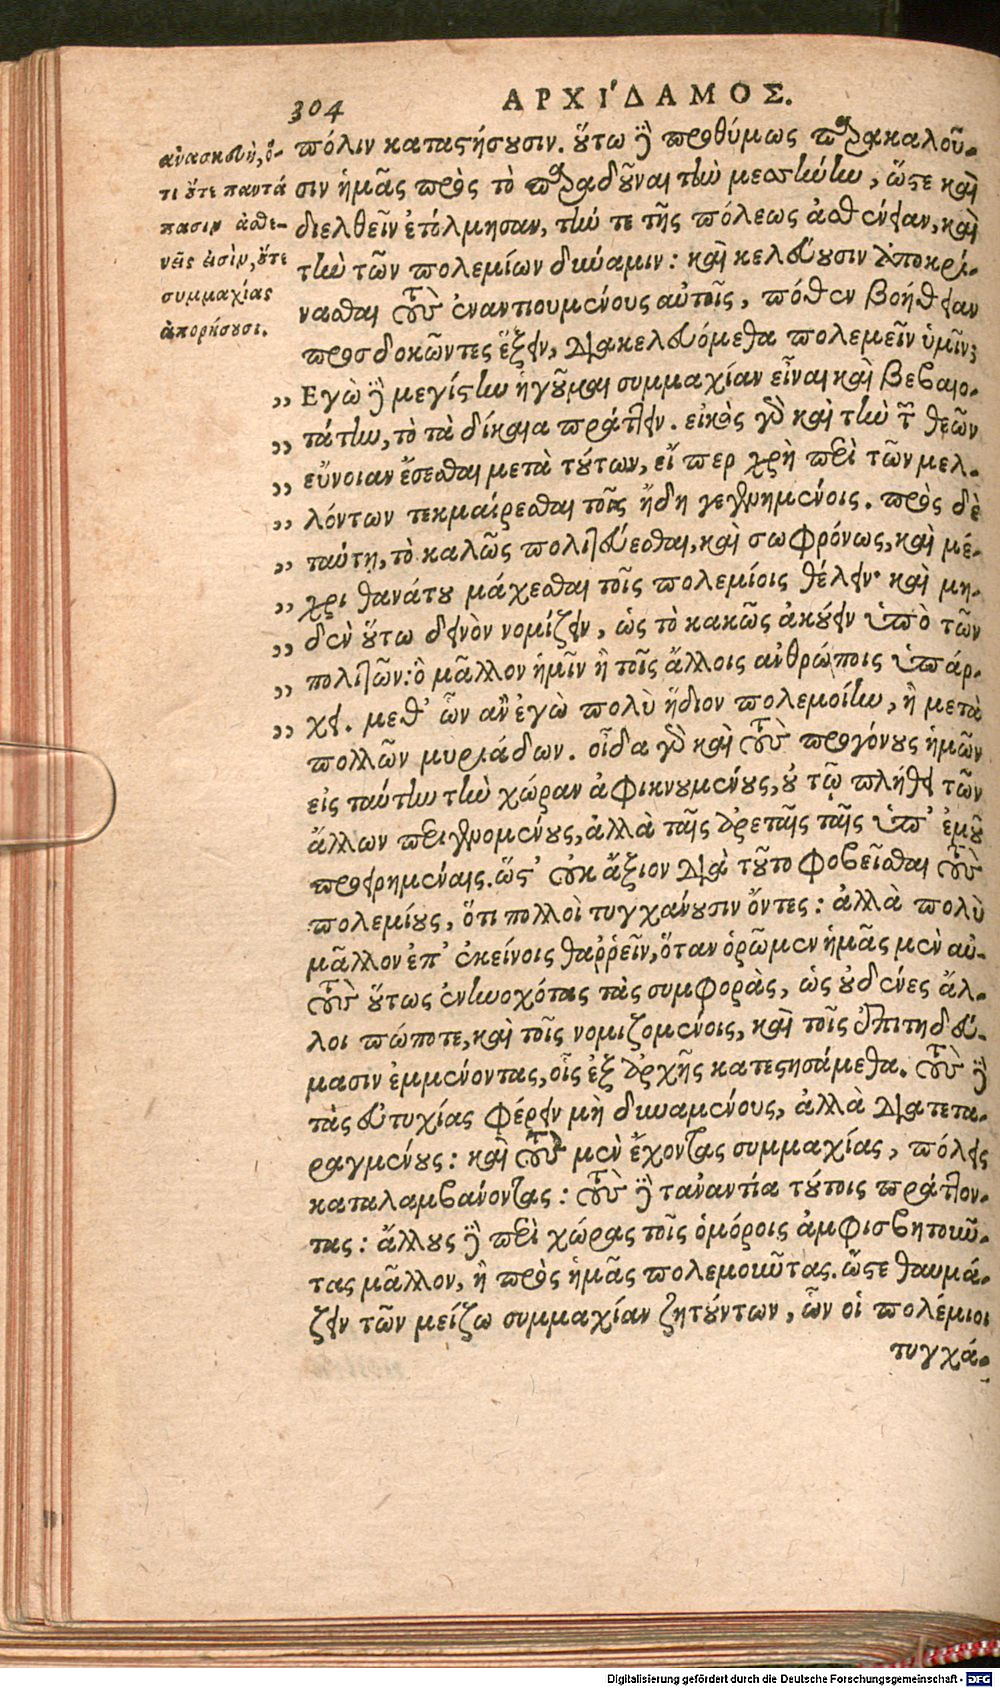 304 ΑΡΧΙ΄ΔΑΜΟΣ.
ἀνασκευὴ, ὅ-
τι οὔτε παντά
πασιν ἀσθε-
νεῖς εἰσὶν, οὔτε
συμμαχίας
ἀπορήσουσι.
πόλιν καταστήσουσιν. οὕτω δὲ προθύμως παρακαλοῦ-
σιν ἡμᾶς πρὸς τὸ παραδοῦναι τὴν μεσσήνην, ὥστε καὶ
διελθεῖν ἐτόλμησαν, τήν τε τῆς πόλεως ἀσθένειαν, καὶ
τὴν τῶν πολεμίων δύναμιν: καὶ κελεύουσιν ἀποκρί-
νασθαι τοὺς ἐναντιουμένους αὐτοῖς, πόθεν βοήθειαν
προσδοκῶντες ἥξειν, διακελευόμεθα πολεμεῖν ὑμῖν;
„ Εγὼ δὲ μεγίστην ἡγοῦμαι συμμαχίαν εἶναι καὶ βεβαιο-
„ τάτην, τὸ τὰ δίκαια πράττειν. εἰκὸς γὰρ καὶ τὴν τῶν θεῶν
„ εὔνοιαν ἔσεσθαι μετὰ τούτων, εἴ περ χρὴ περὶ τῶν μελ-
„ λόντων τεκμαίρεσθαι τοῖς ἤδη γεγενημένοις. πρὸς δὲ
„ ταύτῃ, τὸ καλῶς πολιτεύεσθαι, καὶ σωφρόνως, καὶ μέ-
„ χρι θανάτου μάχεσθαι τοῖς πολεμίοις θέλειν· καὶ μη-
„ δὲν οὕτω δεινὸν νομίζειν, ὡς τὸ κακῶς ἀκούειν ὑπὸ τῶν
„ πολιτῶν: ὃ μᾶλλον ἡμῖν ἢ τοῖς ἄλλοις ἀνθρώποις ὑπάρ-
„ χει. μεθ' ὧν ἂν ἐγὼ πολὺ ἥδιον πολεμοίην, ἢ μετὰ
πολλῶν μυριάδων. οἶδα γὰρ καὶ τοὺς προγόνους ἡμῶν
εἰς ταύτην τὴν χώραν ἀφικνουμένους, οὐ τῷ πλήθει τῶν
ἄλλων περιγενομένους, ἀλλὰ ταῖς ἀρεταῖς ταῖς ὑπ' ἐμοῦ
προειρημέναις. ὥστ' οὐκ ἄξιον διὰ τοῦτο φοβεῖσθαι τοὺς
πολεμίους, ὅτι πολλοὶ τυγχάνουσιν ὄντες: ἀλλὰ πολὺ
μᾶλλον ἐπ' ἐκείνοις θαῤῥεῖν, ὅταν ὁρῶμεν ἡμᾶς μὲν αὐ-
τοὺς οὕτως ἐνηνοχότας τὰς συμφορὰς, ὡς οὐδένες ἄλ-
λοι πώποτε, καὶ τοῖς νομιζομένοις, καὶ τοῖς ἐπιτηδεύ-
μασιν ἐμμένοντας, οἷς ἐξ ἀρχῆς κατεστησάμεθα. τοὺς δὲ
τὰς εὐτυχίας φέρειν μὴ δυναμένους, ἀλλὰ διατετα-
ραγμένους: καὶ τοὺς μὲν ἔχοντας συμμαχίας, πόλεις
καταλαμβάνοντας: τοὺς δὲ τἀναντία τούτοις πράττον-
τας: ἄλλους δὲ περὶ χώρας τοῖς ὁμόροις ἀμφισβητοῦν-
τας μᾶλλον, ἢ πρὸς ἡμᾶς πολεμοῦντας. ὥστε θαυμά-
ζειν τῶν μείζω συμμαχίαν ζητούντων, ὧν οἱ πολέμιοι
τυγχά-
Digitalisierung gefördert durch die Deutsche Forschungsgemeinschaft - DFG